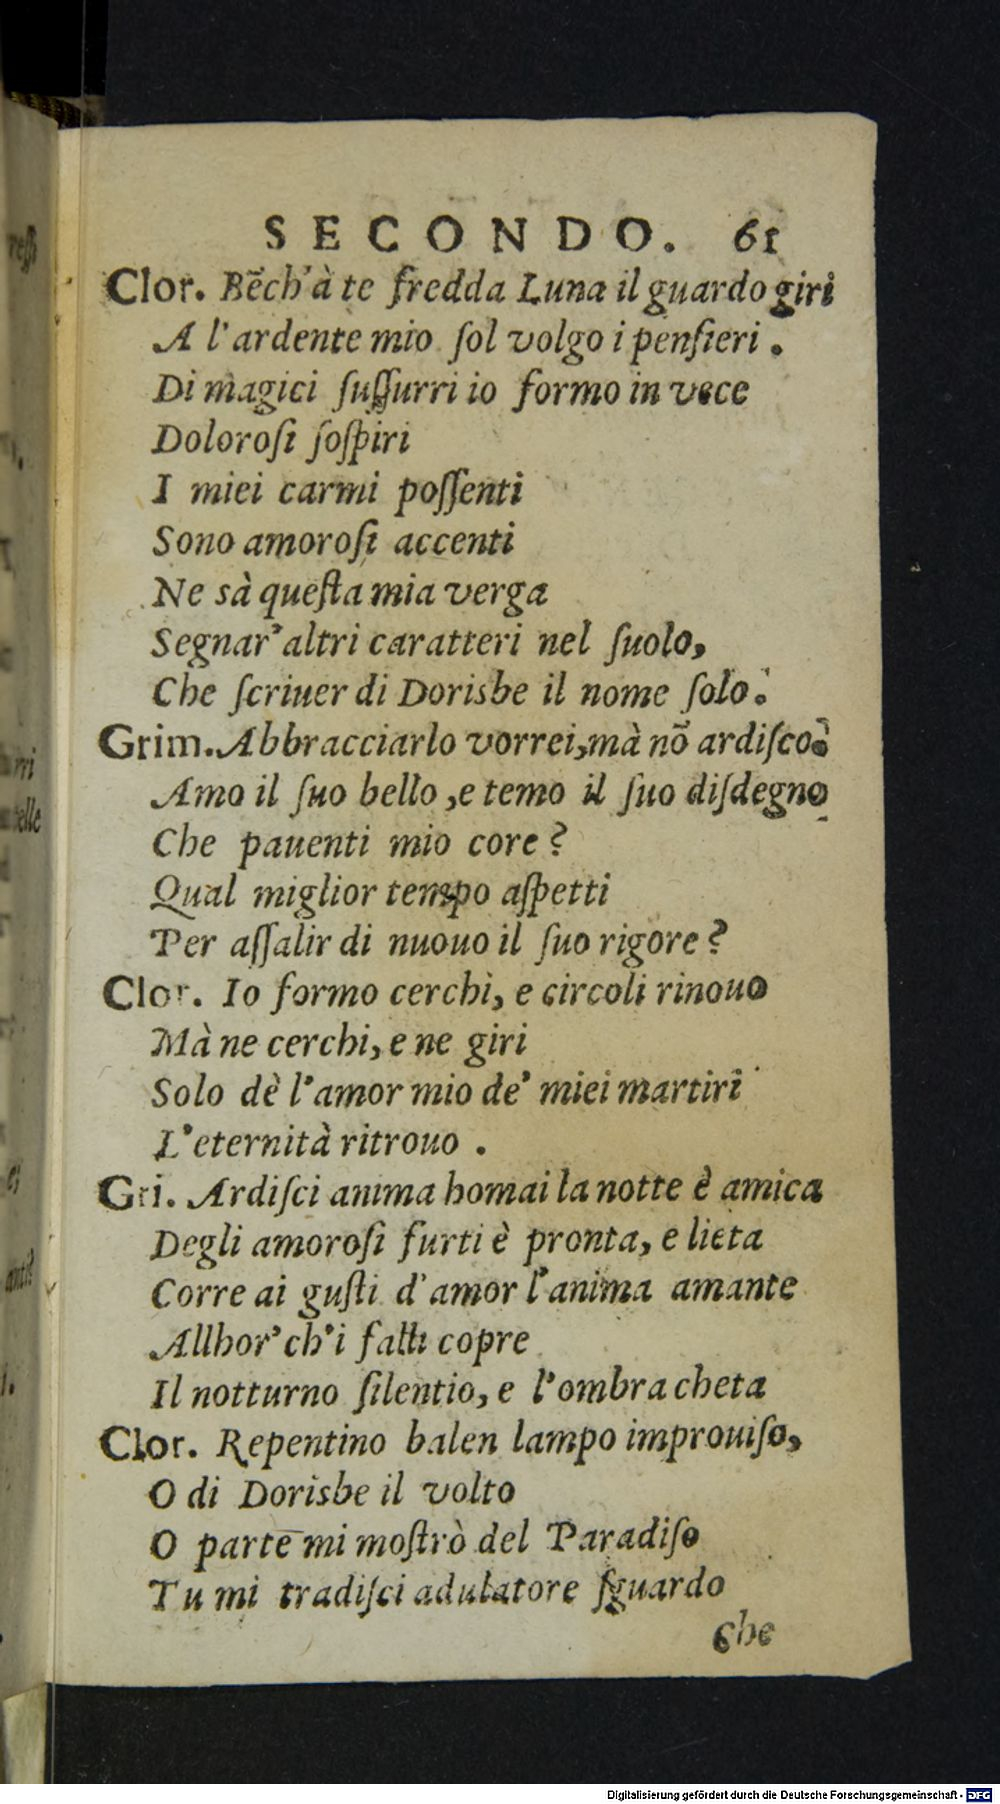 SECONDO. 61
Clor. Bēch'à te fredda Luna il guardo giri
A l'ardente mio ſol volgo i penſieri.
Di magici ſuſſurri io formo in vece
Doloroſi ſoſpiri
I miei carmi poſſenti
Sono amoroſi accenti
Ne sà queſta mia verga
Segnar'altri caratteri nel ſuolo,
Che ſcriuer di Dorisbe il nome ſolo.
Grim. Abbracciarlo vorrei, mà nō ardiſco
Amo il ſuo bello, e temo il ſuo diſdegno
Che pauenti mio core?
Qual miglior tempo aſpetti
Per aſſalir di nuouo il ſuo rigore?
Clor. Io formo cerchi, e circoli rinouo
Mà ne cerchi, e ne giri
Solo dè l'amor mio de' miei martiri
L'eternità ritrouo.
Gri. Ardiſci anima homai la notte è amica
Degli amoroſi furti è pronta, e lieta
Corre ai guſti d'amor l'anima amante
Allhor'ch'i falli copre
Il notturno ſilentio, e l'ombra cheta
Clor. Repentino balen lampo improuiſo,
O di Dorisbe il volto
O parte mi moſtrò del Paradiſo
Tu mi tradiſci adulatore ſguardo
che
Digitalisierung gefördert durch die Deutsche Forschungsgemeinschaft - DFG